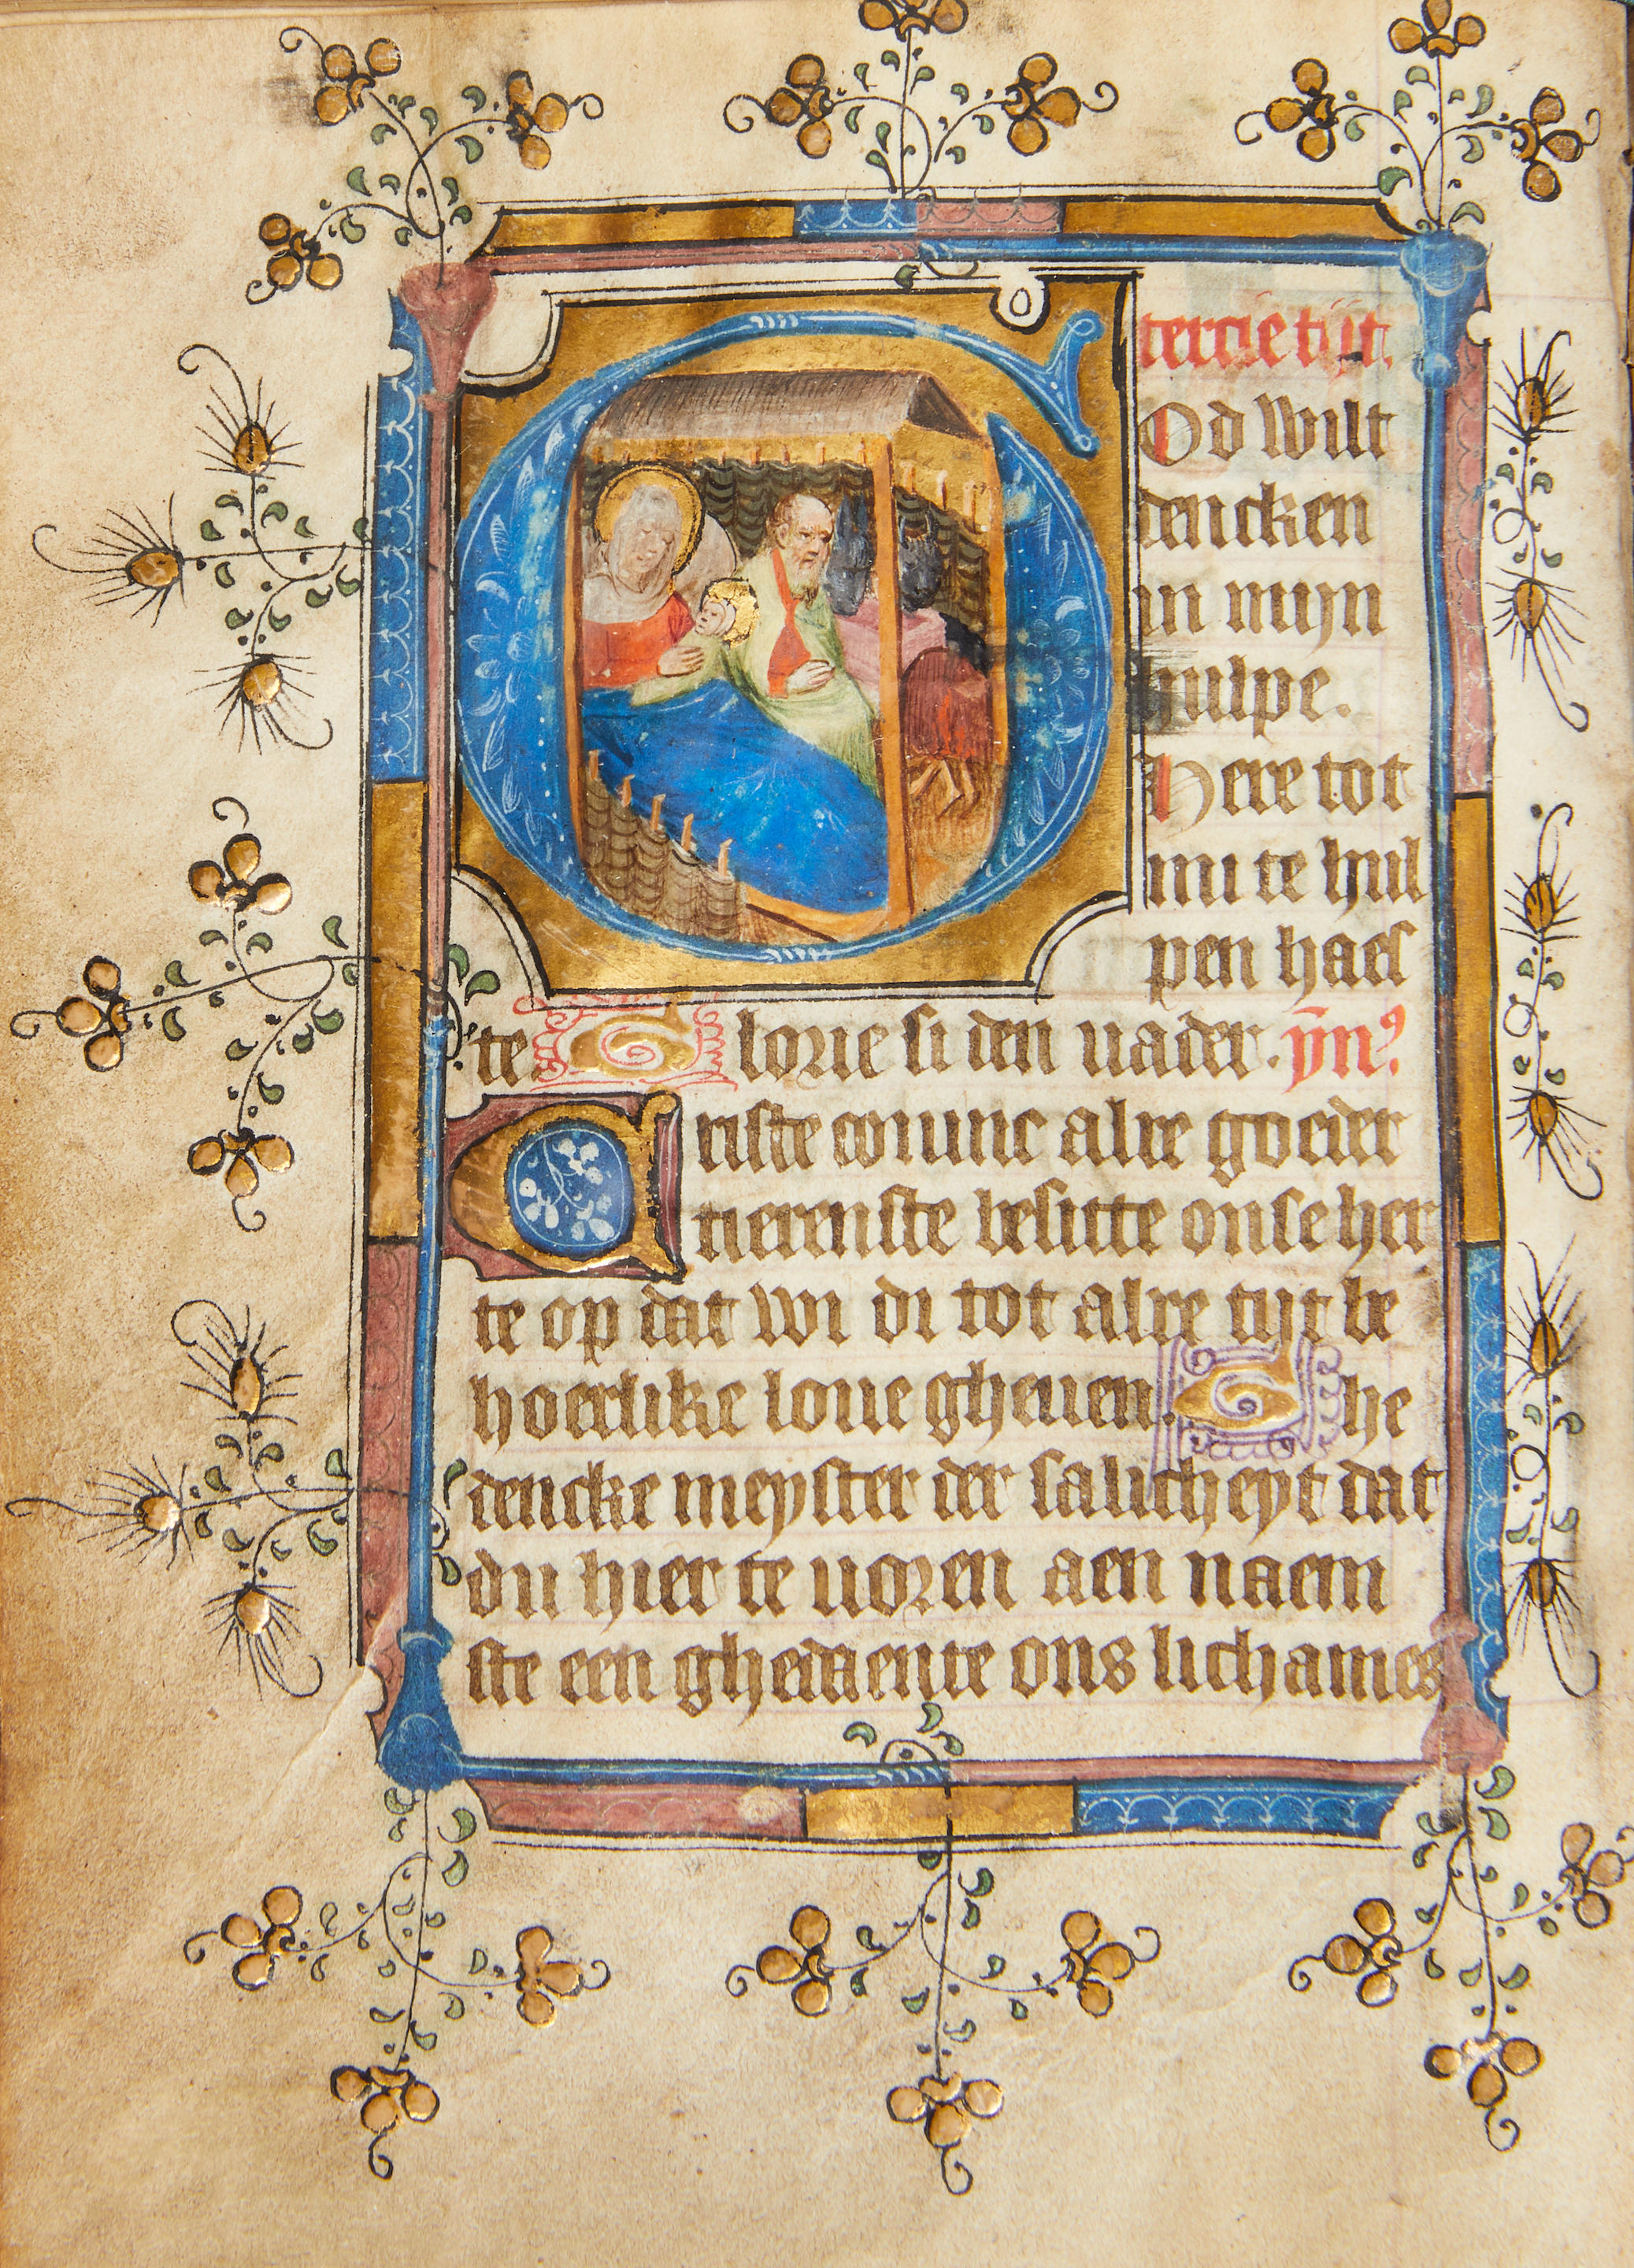 tercie tijt.
God wilt
dencken
in mijn
hulpe.
Here tot
mi te hul
pen haes
te Glorie si den uader. ȳmꝰ
Criste coninc alre goeder
tierenste besitte onse her
te op dat wi di tot alre tijt be
hoerlike loue gheuen. Ghe
dencke meyster der salicheyt dat
du hier te uoren aen naem
ste een ghedaente ons lichames